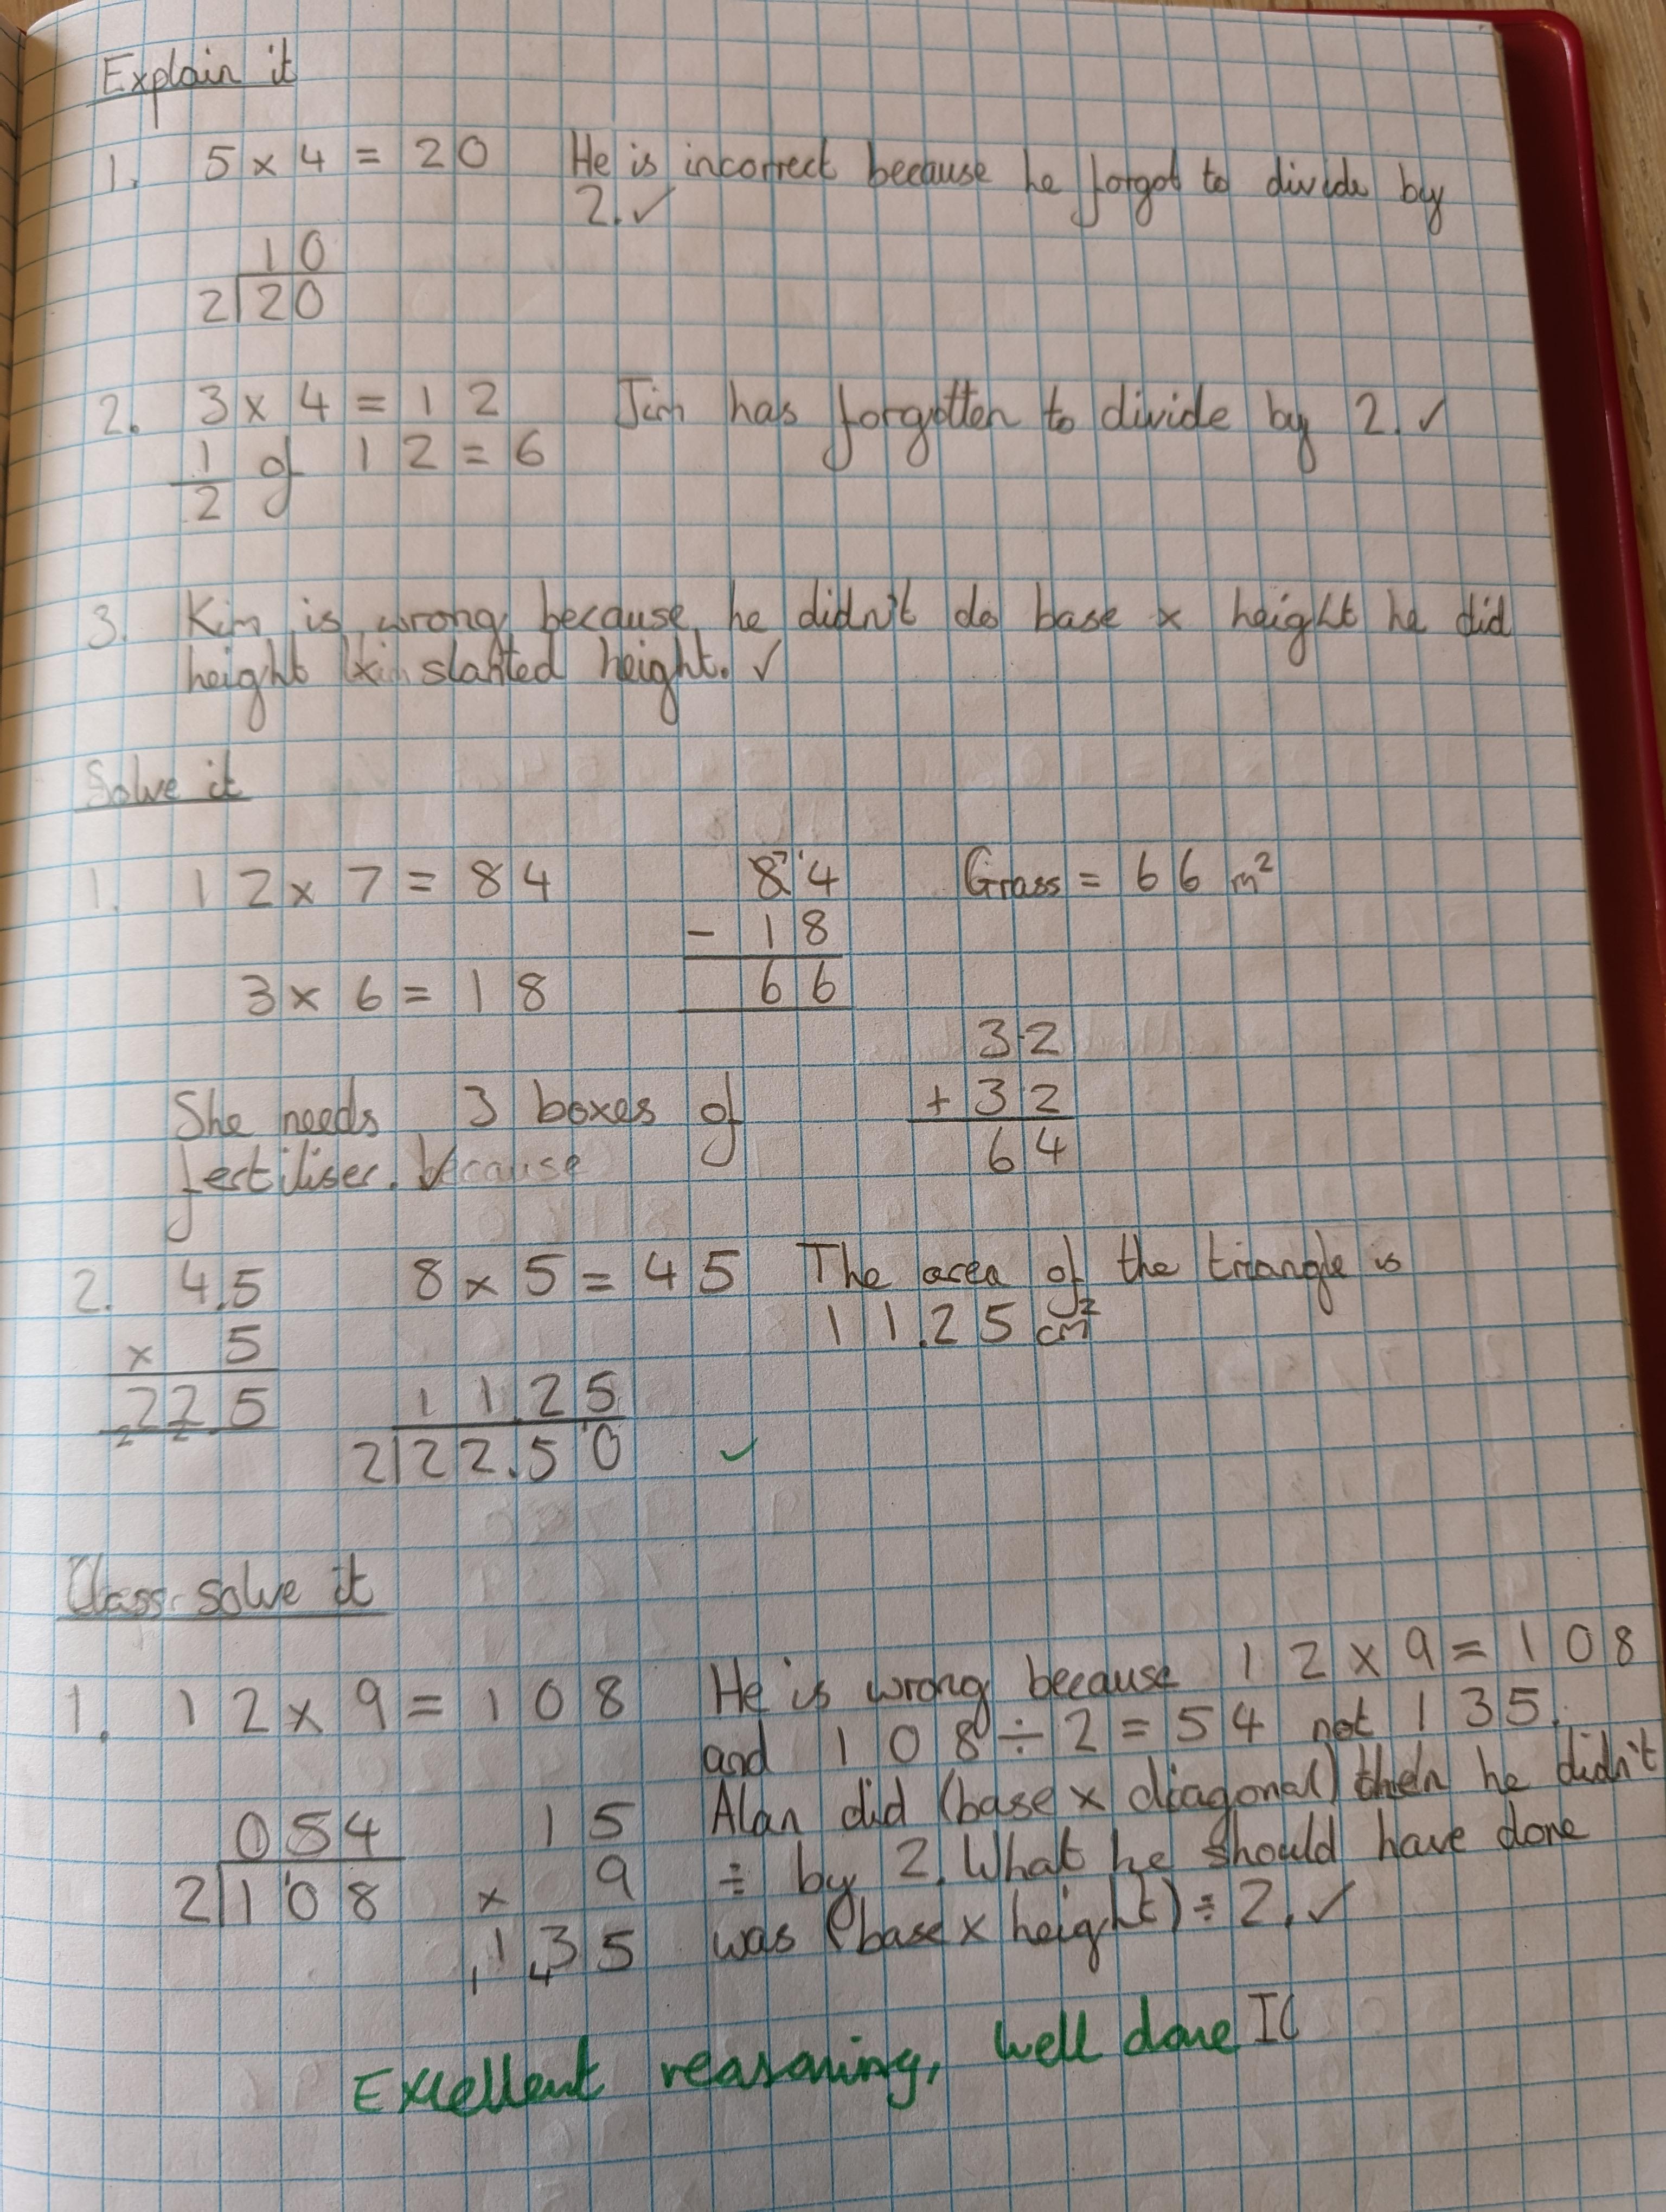 Explain it
1. 5 × 4 = 20 He is incorrect because he forgot to divide by
2. ✓
10
2|20
2. 3 × 4 = 12 Jim has forgotten to divide by 2. ✓
1/2 of 12 = 6
3. Kim is wrong because he didn't do base × height he did
height × slanted height. ✓
Solve it
1. 12 × 7 = 84
3 × 6 = 18
8⁷ ¹4
- 18
66
Grass = 66 m²
32
+ 32
64
She needs 3 boxes of
fertiliser. because
2. 4.5
× 5
22.5
2 2
8 × 5 = 45 The area of the triangle is
11.25 cm²
11.25
2|22.5¹0
✓
Class solve it
1. 12 × 9 = 108
054
2|1¹08
15
× 9
135
1 4
He is wrong because 12 × 9 = 108
and 108 ÷ 2 = 54 not 135.
Alan did (base × diagonal) then he didn't
÷ by 2. What he should have done
was (base × height) ÷ 2. ✓
Excellent reasoning, well done IC